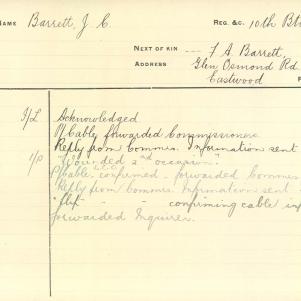 NAME Barrett, J C. REG. &C. 10th Bt
NEXT OF KIN F A Barrett,
ADDRESS Glen Osmond Rd
Eastwood
I/L Acknowledged
P/Cable forwarded Commissioners
Reply from Commrs. Information sent
1/P "Wounded 2nd occasion"
P/Cable confirmed - forwarded Commrs
Reply from Commrs Information sent
" - " - confirming cable
forwarded Inquirer.